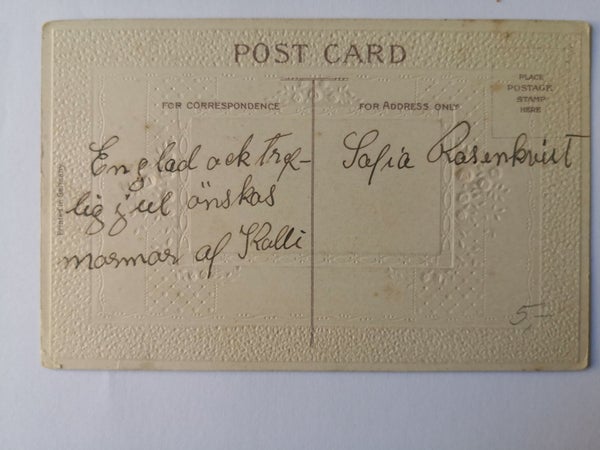 POST CARD
PLACE
POSTAGE
STAMP
HERE
FOR CORRESPONDENCE
FOR ADDRESS ONLY
En glad ock tre-
lig jul önskas
mormor af Kalli
Sofia Rosenkvist
Printed in Germany
5,-